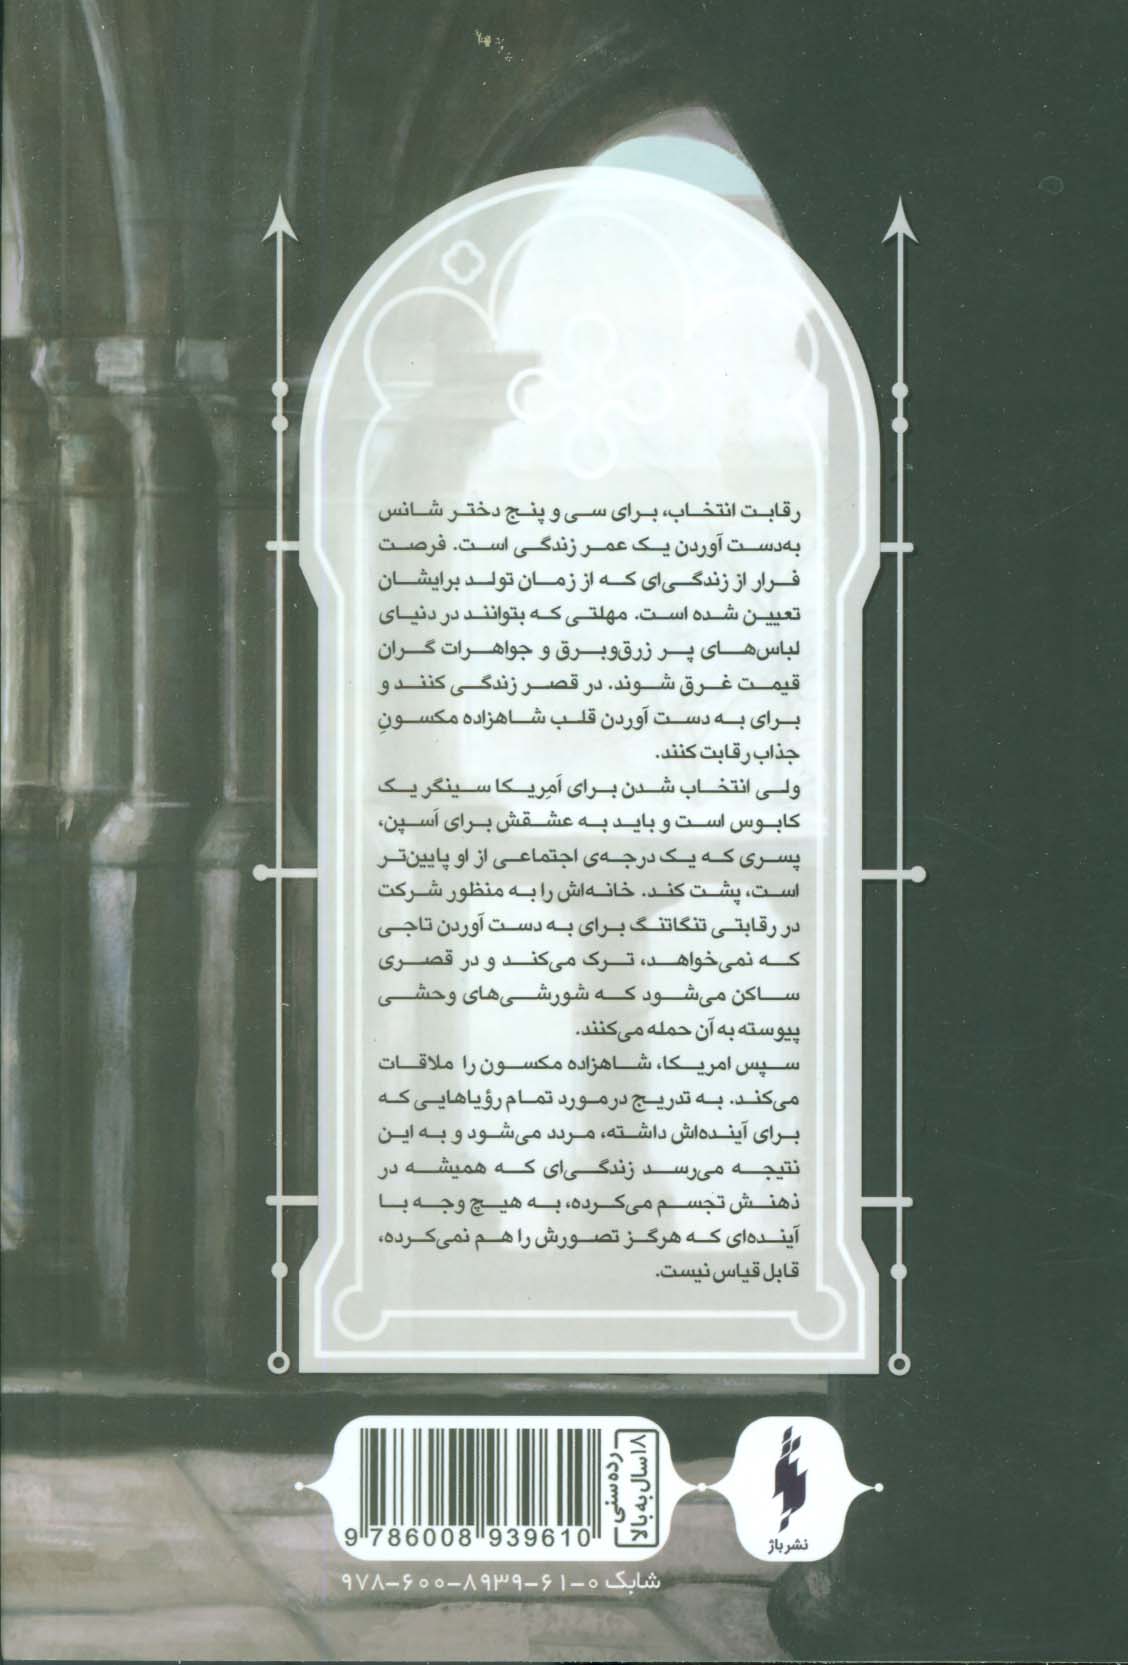 رقابت انتخاب، برای سی و پنج دختر شانس
به‌دست آوردن یک عمر زندگی است. فرصت
فرار از زندگی‌ای که از زمان تولد برایشان
تعیین شده است. مهلتی که بتوانند در دنیای
لباس‌های پر زرق‌وبرق و جواهرات گران
قیمت غرق شوند. در قصر زندگی کنند و
برای به دست آوردن قلب شاهزاده مکسونِ
جذاب رقابت کنند.
ولی انتخاب شدن برای اَمِریکا سینگر یک
کابوس است و باید به عشقش برای اَسپن،
پسری که یک درجه‌ی اجتماعی از او پایین‌تر
است، پشت کند. خانه‌اش را به منظور شرکت
در رقابتی تنگاتنگ برای به دست آوردن تاجی
که نمی‌خواهد، ترک می‌کند و در قصری
ساکن می‌شود که شورشی‌های وحشی
پیوسته به آن حمله می‌کنند.
سپس امریکا، شاهزاده مکسون را ملاقات
می‌کند. به تدریج درمورد تمام رؤیاهایی که
برای آینده‌اش داشته، مردد می‌شود و به این
نتیجه می‌رسد زندگی‌ای که همیشه در
ذهنش تجسم می‌کرده، به هیچ وجه با
آینده‌ای که هرگز تصورش را هم نمی‌کرده،
قابل قیاس نیست.
نشر باژ
رده‌سنی
۱۸سال به بالا
9 786008 939610
شابک ۰-۶۱-۸۹۳۹-۶۰۰-۹۷۸